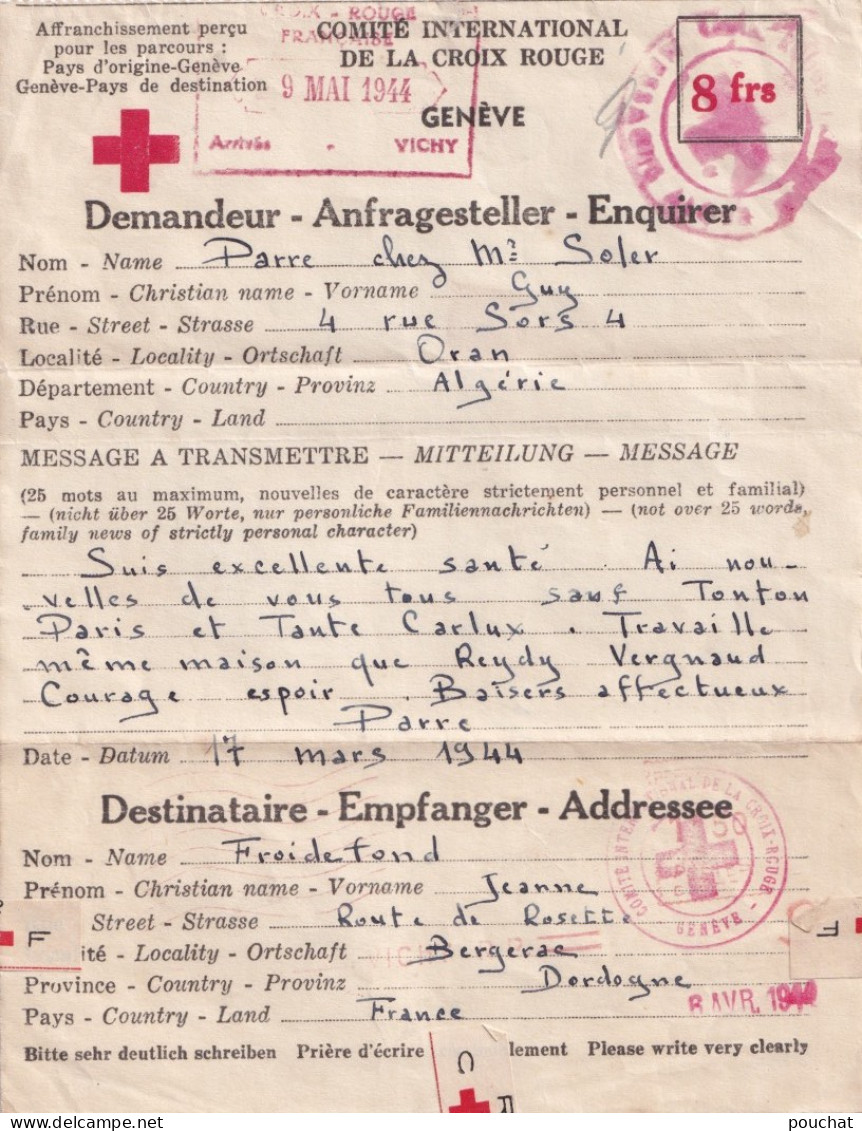 Affranchissement perçu
pour les parcours :
Pays d'origine-Genève
Genève-Pays de destination
CROIX - ROUGE
FRANÇAISE
9 MAI 1944
Arrivée . VICHY
COMITÉ INTERNATIONAL
DE LA CROIX ROUGE
GENÈVE
8 frs
Demandeur - Anfragesteller - Enquirer
Nom - Name Parre chez Mr Soler
Prénom - Christian name - Vorname Guy
Rue - Street - Strasse 4 rue Sors 4
Localité - Locality - Ortschaft Oran
Département - Country - Provinz Algérie
Pays - Country - Land
MESSAGE A TRANSMETTRE — MITTEILUNG — MESSAGE
(25 mots au maximum, nouvelles de caractère strictement personnel et familial)
— (nicht über 25 Worte, nur personliche Familiennachrichten) — (not over 25 words,
family news of strictly personal character)
Suis excellente santé. Ai nou-
velles de vous tous sauf Tonton
Paris et Tante Carlux. Travaille
même maison que Reydy Vergnaud
Courage espoir. Baisers affectueux
Parre
Date - Datum 17 mars 1944
Destinataire - Empfanger - Addressee
Nom - Name Froidefond
Prénom - Christian name - Vorname Jeanne
Street - Strasse Route de Rosette
ité - Locality - Ortschaft Bergerac
Province - Country - Provinz Dordogne
Pays - Country - Land France
COMITÉ INTERNATIONAL DE LA CROIX-ROUGE - GENÈVE -
AVR. 194
F
F
Bitte sehr deutlich schreiben Prière d'écrire lement Please write very clearly
C
www.delcampe.net
pouchat